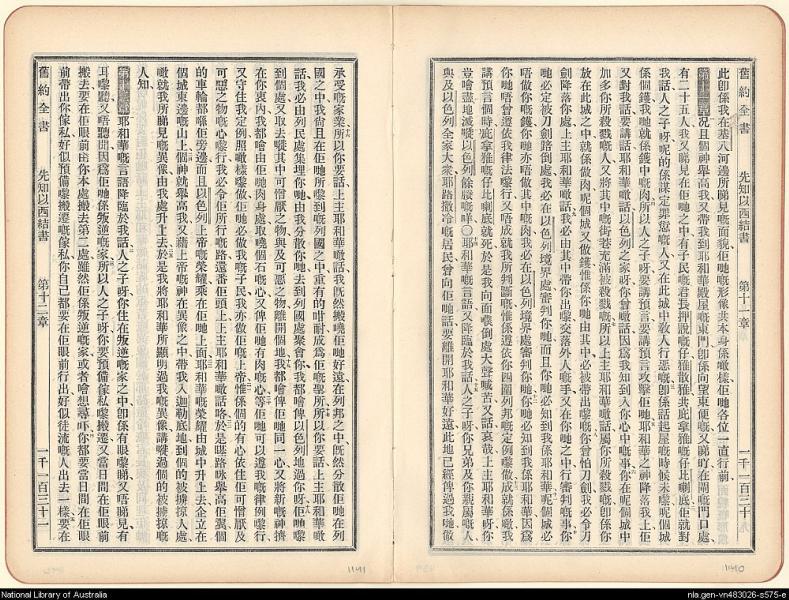 舊約全書 先知以西結書 第十一章 一千一百三十
此卽係我在基八河邊所睇見嘅面貌佢哋嘅形像共本身係噉樣佢哋各位一直行前
第十一章 況且個神舉高我又帶我到耶和華殿屋嘅東門卽係向望東便嘅又睇吓在閘嘅門口處
有二十五人我又睇見在佢哋之中有子民嘅君長押設嘅仔雅散雅共庇拿雅嘅仔比喇底佢就對
我話人之子呀呢的係謀定罪愆嘅人又在此城中教人行惡嘅卽係話起屋嘅時候未嚟呢個城
係個鑊我哋就係鑊中嘅肉所以人之子呀要講預言要講預言攻擊佢哋耶和華之神降落我上佢
又對我話要講話耶和華噉話以色列之家呀你曾噉話因爲我知到入你心中嘅事你在呢個城中
加多你所殺戮嘅人又將其中嘅街巷充滿被殺戮嘅所以上主耶和華噉話屬你所殺戮嘅卽係你
放在此城之中就係做肉呢個城又做鑊惟係你哋由其中必被帶出嚟你曾怕刀劍我必令刀
劍降落你處上主耶和華噉話我必由其中帶你出嚟交落外人嘅手又在你哋之中行審判嘅事你
哋必定被刀劍踣倒處我必在以色列境界處審判你哋而且你哋必知到我係耶和華呢個城必
唔做你嘅鑊你哋亦唔做其中嘅肉我必在以色列境界處審判你哋你哋必知到我係耶和華因爲
你哋唔曾遵依我律法嚟行又唔成就我所判斷嘅惟係遵依你四圍列邦嘅定例嚟做咯就係噉我
講預言個時庇拿雅嘅仔比喇底就死於是我向面噗倒處大聲喊苦又話哀哉上主耶和華呀你
豈唅盡地滅嘥以色列餘賸嘅咩〇耶和華嘅言語又降臨於我話人之子呀你兄弟及你親屬嘅人
與及以色列全家大衆耶路撒冷嘅居民曾向佢哋話要離開耶和華好遠此地已經俾過我哋做
承受嘅家業所以你要話上主耶和華噉話我旣然搬嘵佢哋好遠在列邦之中旣然分散佢哋在列
國之中我尙且在佢哋所嚟到嘅列國之中重有的咁耐成爲佢嘅聖所所以你要話上主耶和華噉
話我必由列民處集埋你哋由我分散你哋去到列國處聚會你我都唅俾以色列地過你呀佢哋嚟
到個處又取去嘥其中可憎厭之物與及可惡之物離開個地我都唅俾佢哋同一心又將新嘅神擠
在你裏內我都唅由佢哋肉身處取嘵個石嘅心又俾佢哋有肉嘅心等佢哋可以遵我嘅律例嚟行
又守住我定例照噉樣嚟做佢哋必做我嘅子民我亦做佢嘅上帝惟係個的有心依住佢可憎厭及
可惡之物嘅心嚟行我必令佢所行嘅路還番佢頭上上主耶和華噉話咯於是㖭路咏舉高佢翼個
的車輪都喺佢旁邊而且以色列上帝嘅榮耀乘在佢哋上面耶和華嘅榮耀由城中升上去企立在
個城東邊嘅山上個神就舉高我又藉上帝嘅神在異像之中帶我入迦勒底地到個的被擄掠人處
噉就我所睇見嘅異像由我處升上去於是我將耶和華所顯明過我嘅異像講嘥過個的被擄掠嘅
人知
第十二章 耶和華嘅言語降臨於我話人之子呀你住在叛逆嘅家之中卽係有眼嚟睇又唔睇見有
耳嚟聽又唔聽聞因爲佢哋係叛逆嘅家所以人之子呀你要預備傢私嚟搬遷又當日間在佢眼前
搬去要在佢眼前由你本處搬去第二處雖然佢係叛逆嘅家或者唅想尋吓你都要當日間在佢眼
前帶出你傢私好似預備嚟搬遷嘅傢私你自己都要在佢眼前行出好似徒流嘅人出去一樣要在
舊約全書 先知以西結書 第十二章 一千一百三十一
1141
1140
National Library of Australia
nla.gen-vn483026-s575-e